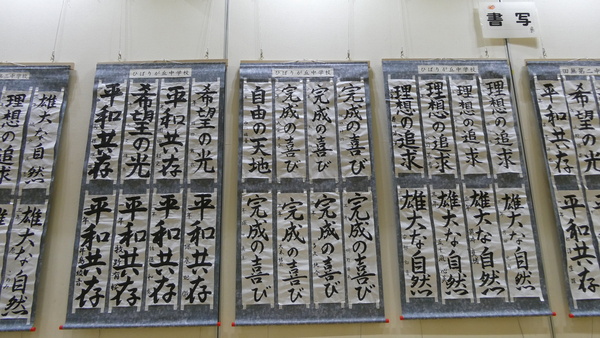 書写
田無第二
希望の光
平和共存
平和共存
ひばりが丘中学校
理想の追求
理想の追求
理想の追求
理想の追求
雄大な自然
雄大な自然
雄大な自然
雄大な自然
ひばりが丘中学校
完成の喜び
完成の喜び
完成の喜び
自由の天地
完成の喜び
完成の喜び
完成の喜び
完成の喜び
ひばりが丘中学校
希望の光
平和共存
希望の光
平和共存
平和共存
平和共存
平和共存
平和共存
二中学校
雄大な自然
理想の追求
雄大な自然